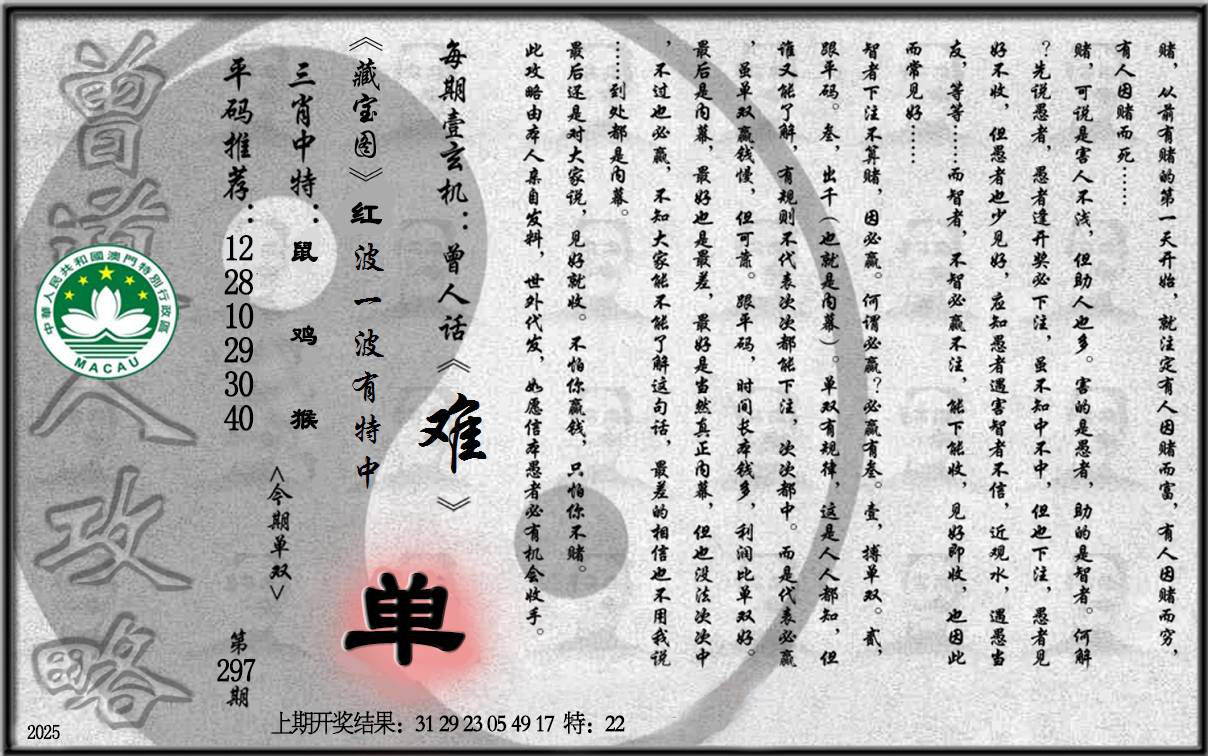 赌，从前有赌的第一天开始，就注定有人因赌而富，有人因赌而穷，
有人因赌而死……
赌，可说是害人不浅，但助人也多。害的是愚者，助的是智者。何解
？先说愚者，愚者逢开奖必下注，虽不知中不中，但也下注，愚者见
好不收，但愚者也少见好，应知愚者遇害智者不信，近观水，遇愚当
友，等等……而智者，不智必赢不注，能下能收，见好即收，也因此
而常见好……
智者下注不算赌，因必赢。何谓必赢？必赢有叁。壹，搏单双。贰，
跟平码。叁，出千（也就是内幕）。单双有规律，这是人人都知，但
谁又能了解，有规则不代表次次都能下注，次次都中。而是代表必赢
，虽单双赢钱慢，但可靠。跟平码，时间长本钱多，利润比单双好。
最后是内幕，最好也是最差，最好是当然真正内幕，但也没法次次中
，不过也必赢，不知大家能不能了解这句话，最差的相信也不用我说
……到处都是内幕。
最后还是对大家说，见好就收。不怕你赢钱，只怕你不赌。
此攻略由本人亲自发料，世外代发，如愿信本愚者必有机会收手。
每期壹玄机：曾人话《难》
《藏宝图》红波一波有特中
单
三肖中特：鼠 鸡 猴
<今期单双>
平码推荐：12 28 10 29 30 40
第297期
曾道人攻略
中華人民共和國澳門特別行政區
MACAU
上期开奖结果：31 29 23 05 49 17 特：22
2025